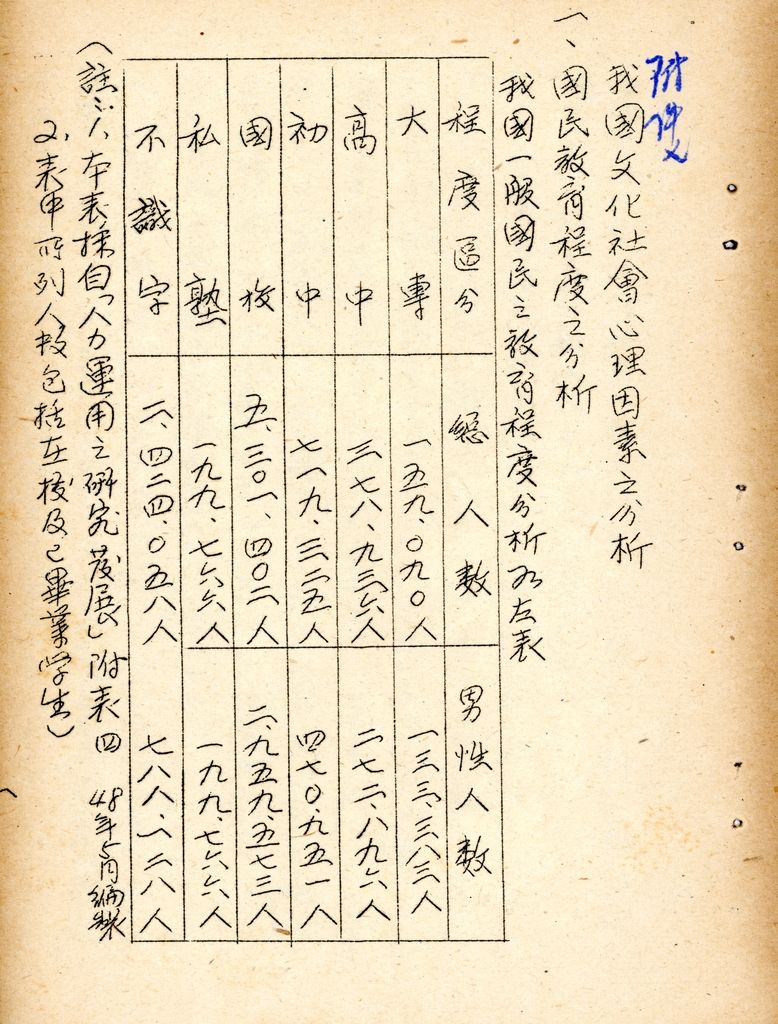 附件
我國文化社會心理因素之分析
一、國民教育程度之分析
我國一般國民之教育程度分析如左表
程度區分 總人數 男性人數
大專 一五九、〇九〇人 一三三、三八三人
高中 三七八、九三六人 二七二、八九六人
初中 七一九、三二五人 四七〇、九五一人
國校 五、三〇一、四〇二人 二、九五九、五七三人
私塾 一九九、七六六人 一九九、七六六人
不識字 二、四二四、〇五八人 七八八、一二八人
(註:1、本表採自「人力運用之研究發展」附表四 48年5月編製
2、表中所列人数包括在校及已畢業學生)